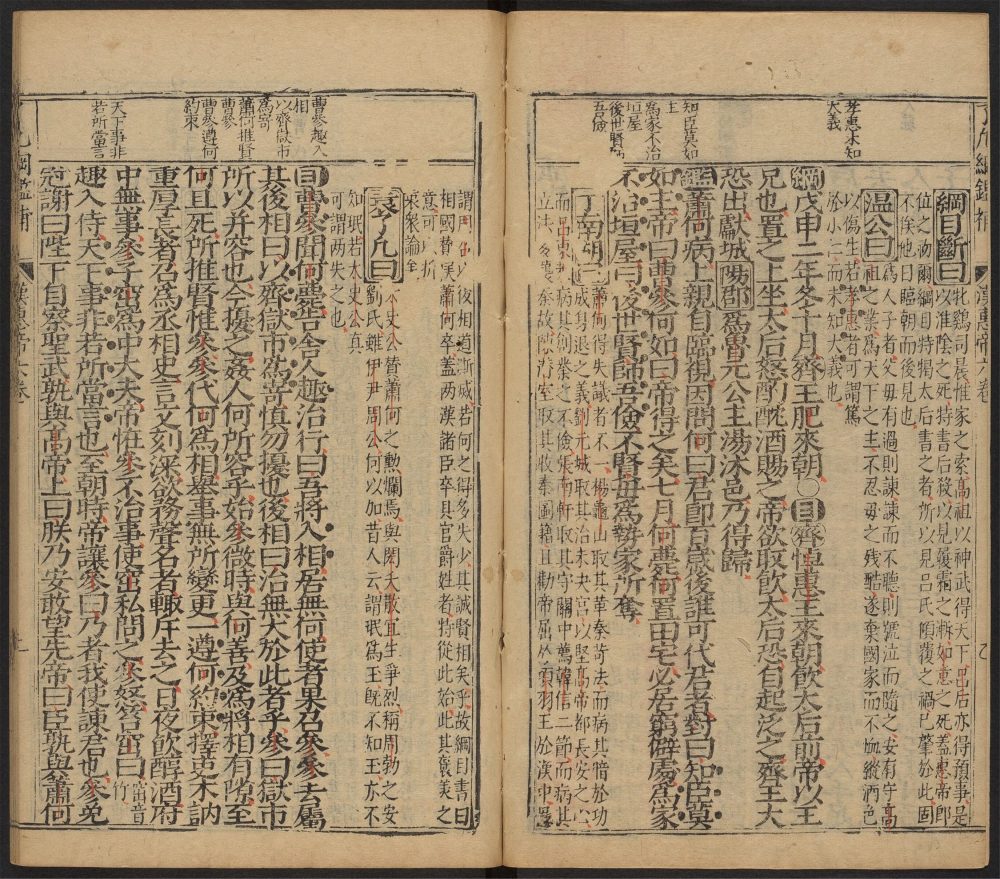 孝惠未知
大義
知臣莫如
主
爲家不治
垣屋
後世賢師
吾儉
綱目斷曰
牝鷄司晨惟家之索高祖以神武得天下呂后亦得預事是
以淮陰之死特書后殺以見履霜之漸如意之死蓋惠帝卽
位之初爾綱目特揭太后書之者所以見呂氏傾覆之禍已肇於此固
不俟他日臨朝而後見也
温公曰
爲人子者父毋有過則諫諫而不聽則號泣而隨之安有守高
祖之業爲天下之主不忍毋之残酷遂棄國家而不恤縱酒色
以傷生若孝惠者可謂篤
於小仁而未知大義也
綱戊申二年冬十月齊王肥來朝〇目齊悼惠王來朝飲太后前帝以王
兄也置之上坐太后怒酌酖酒賜之帝欲取飲太后恐自起泛之齊王大
恐出獻城陽郡爲魯元公主湯沐邑乃得歸
鑑蕭何病上親自臨視因問何曰君卽百歲後誰可代君者對曰知臣莫
如主帝曰曹參何如曰帝得之矣七月何薨何置田宅必居窮僻處爲家
不治垣屋曰後世賢師吾儉不賢毋爲勢家所奪
丁南湖曰
蕭何得失議者不一楊龜山取其革秦苛法而病其暗於功
成身退之義劉元城取其治未央宮以堅高帝都長安之心
立法
謂
後相道漸咸若何之得多失少其誠賢相矣乎故綱目書曰
相國酇
蕭何卒蓋兩漢諸臣卒具官爵姓者特從此始此其褒美之
意可
采衆論全
袁了凡曰
太史公賛蕭何之勲爛焉與閎夭散宜生爭烈稱周勃之安
劉氏雖伊尹周公何以加昔人云謂珉爲玉旣不知玉亦不
知珉若太史公真
可謂兩失之也
目曹參聞何薨告舍人趣治行曰吾將入相居無何使者果召參參去屬
其後相曰以齊獄市爲寄慎勿擾也後相曰治無大於此者乎參曰獄市
所以并容也今擾之姦人何所容乎始參微時與何善及爲將相有隙至
何且死所推賢惟參參代何爲相舉事無所變更一遵何約束擇吏木訥
重厚長者召爲丞相史言文刻深欲務聲名者輙斥去之日夜飲醇酒府
中無事參子窋爲中大夫帝恠參不治事使窋私問之參怒笞窋曰窋音竹
趣入侍天下事非若所當言也至朝時帝讓參曰乃者我使諫君也參免
冠謝曰陛下自察聖武孰與高帝上曰朕乃安敢望先帝曰臣孰與蕭何
曹參趣入
相
以齊獄市
爲寄
蕭何推賢
曹參
曹參遵何
約束
天下事非
若所當言